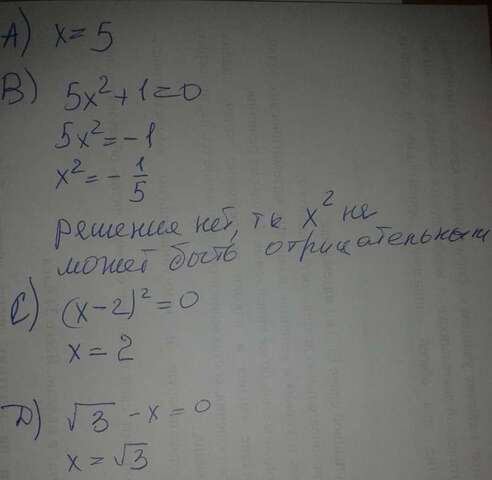 A) x = 5
B) 5x² + 1 = 0
5x² = -1
x² = - 1/5
решения нет, т.к. x² не
может быть отрицательным
C) (x - 2)² = 0
x = 2
D) √3 - x = 0
x = √3